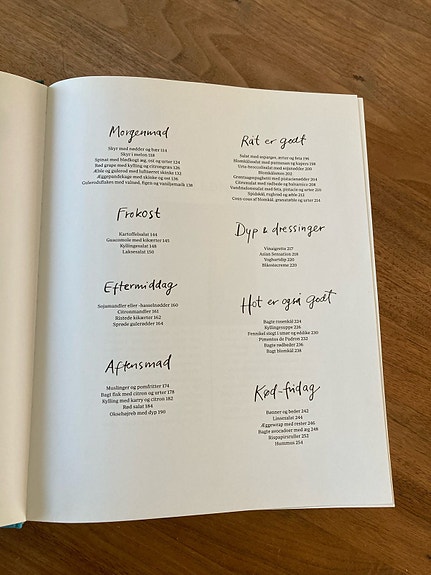 Morgenmad
Skyr med nødder og bær 114
Skyr i melon 118
Spinat med blødkogt æg, ost og urter 124
Rød grapе med kylling og citrongræs 126
Æble og gulerod med lufttørret skinke 132
Æggepandekage med skinke og ost 136
Gulerodsflakes med valnød, figen og vaniljemælk 138
Frokost
Kartoffelsalat 144
Guacomole med kikærter 145
Kyllingesalat 148
Laksesalat 150
Eftermiddag
Sojamandler eller -hasselnødder 160
Citronmandler 161
Ristede kikærter 162
Sprøde gulerødder 164
Aftensmad
Muslinger og pomfritter 174
Bagt fisk med citron og urter 178
Kylling med karry og citron 182
Rød salat 184
Oksehøjreb med dyp 190
Råt er godt
Salat med asparges, ærter og feta 196
Blomkålssalat med parmesan og kapers 198
Urte-broccolisalat med sojanødder 200
Blomkålsmos 202
Grøntsagsspaghetti med pistacienødder 204
Citrussalat med rødbede og balsamico 208
Vandmelonsalat med feta, pistacie og urter 210
Spidskål, rugbrød og æble 212
Cous-cous af blomkål, granatæble og urter 214
Dyp & dressinger
Vinaigrette 217
Asian Sensation 218
Yoghurtdip 220
Blåostecreme 220
Hot er også godt
Bagte rosenkål 224
Kyllingesuppe 226
Fennikel stegt i smør og eddike 230
Pimentos de Padron 232
Bagte rødbeder 236
Bagt blomkål 238
Kød-fridag
Bønner og beder 242
Linsesalat 244
Æggewrap med rester 246
Bagte avocadoer med æg 248
Rispapirsruller 252
Hummus 254